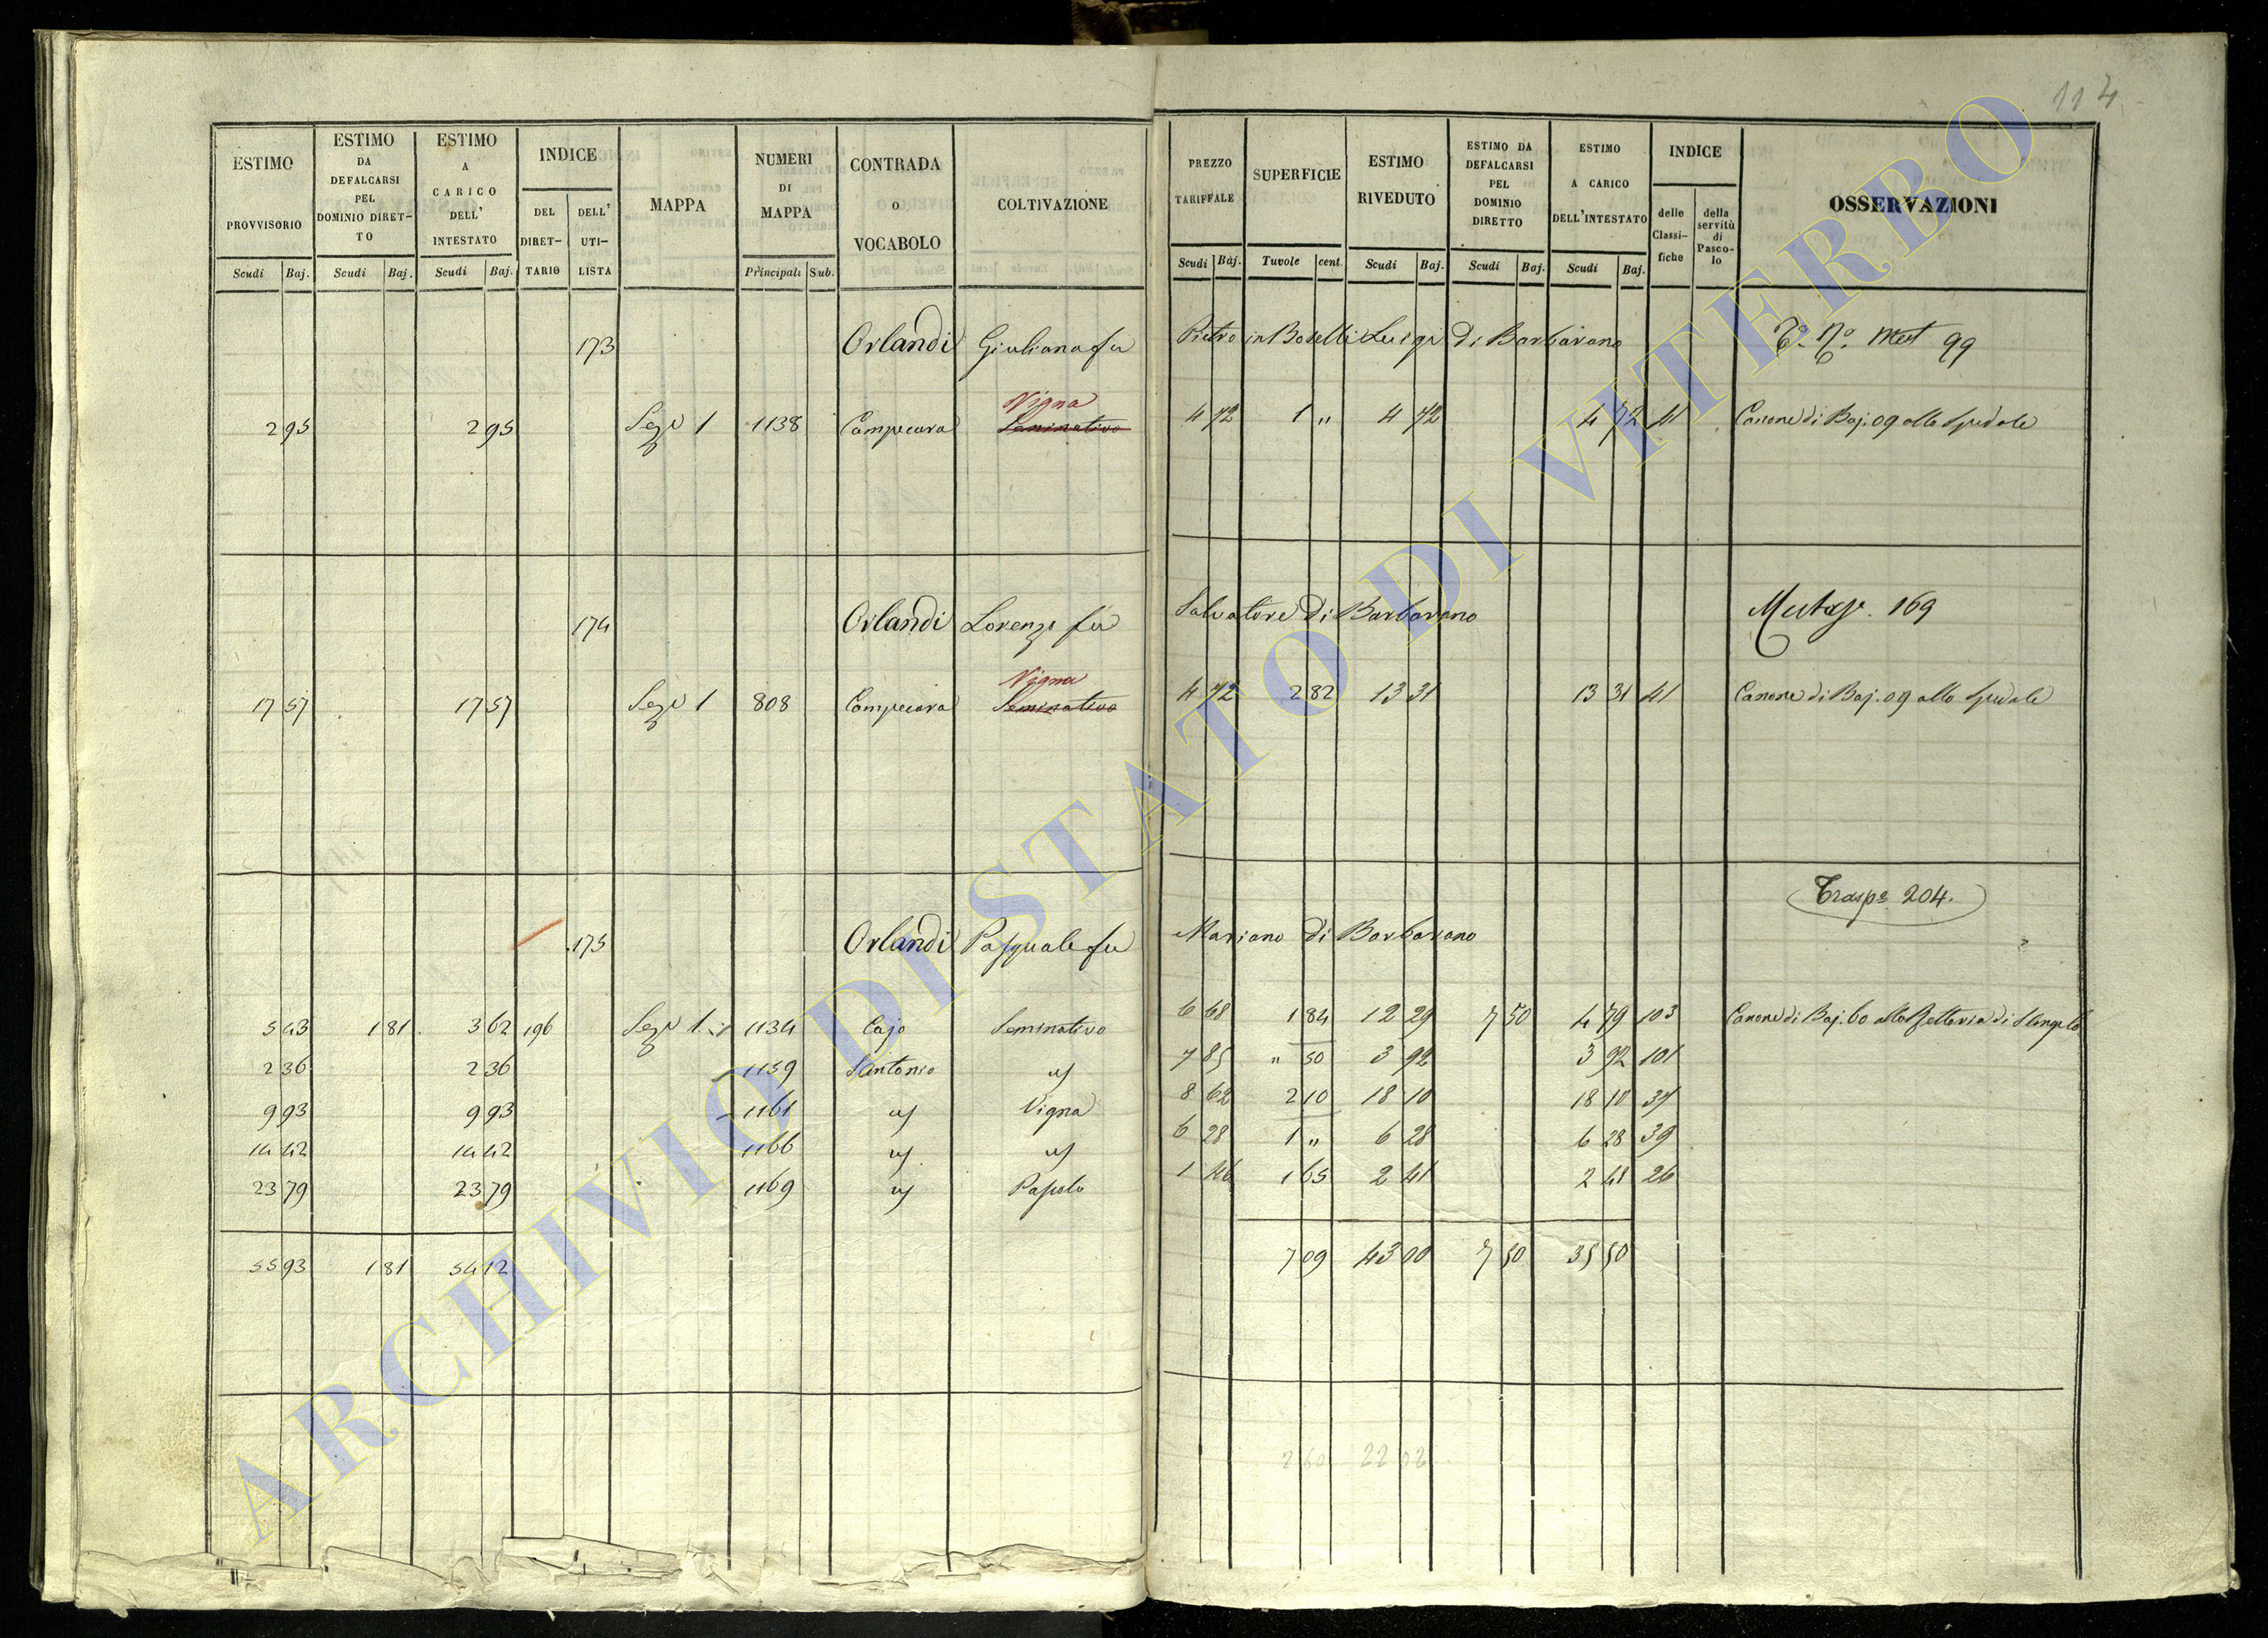 114
ESTIMO PROVVISORIO | ESTIMO DA DEFALCARSI PEL DOMINIO DIRETTO | ESTIMO A CARICO DELL' INTESTATO | INDICE DEL DIRETTARIO | DELL' UTILISTA | MAPPA | NUMERI DI MAPPA | CONTRADA O VOCABOLO | COLTIVAZIONE | PREZZO TARIFFALE | SUPERFICIE | ESTIMO RIVEDUTO | ESTIMO DA DEFALCARSI PEL DOMINIO DIRETTO | ESTIMO A CARICO DELL'INTESTATO | INDICE delle Classifiche | della servitù di Pascolo | OSSERVAZIONI
Scudi Baj. | Scudi Baj. | Scudi Baj. | Principali Sub. | Scudi Baj. | Tavole cent. | Scudi Baj. | Scudi Baj. | Scudi Baj.
173 Orlandi Giuliana fu Pietro in Boselli Luigi di Barbarano 99
Vigna
2 95 | 2 95 | Seze 1 | 1138 | Campecora | Seminativo | 4 72 | 1 " | 4 72 | 4 72 | 41 | Canone di Baj. 09 allo Spedale
174 Orlandi Lorenzo fu Salvatore di Barbarano 169
Vigna
17 57 | 17 57 | Seze 1 | 808 | Campecora | Seminativo | 4 72 | 2 82 | 13 31 | 13 31 | 41 | Canone di Baj. 09 allo Spedale
Traspo 204.
175 Orlandi Pasquale fu Mariano di Barbarano
5 43 | 1 81 | 3 62 | 196 | Seze 1 | 1134 | Cajo | Seminativo | 6 68 | 1 84 | 12 29 | 7 50 | 4 79 | 103 | Canone di Baj. 60 alla di S Angelo
2 36 | 2 36 | 1159 | S Antonio | " | 7 85 | " 50 | 3 92 | 3 92 | 101
9 93 | 9 93 | 1161 | " | Vigna | 8 62 | 2 10 | 18 10 | 18 10 | 37
14 42 | 14 42 | 1166 | " | " | 6 28 | 1 " | 6 28 | 6 28 | 39
23 79 | 23 79 | 1169 | " | Pascolo | 1 46 | 1 65 | 2 41 | 2 41 | 26
55 93 | 1 81 | 54 12 | 7 09 | 43 00 | 7 50 | 35 50
ARCHIVIO DI STATO DI VITERBO